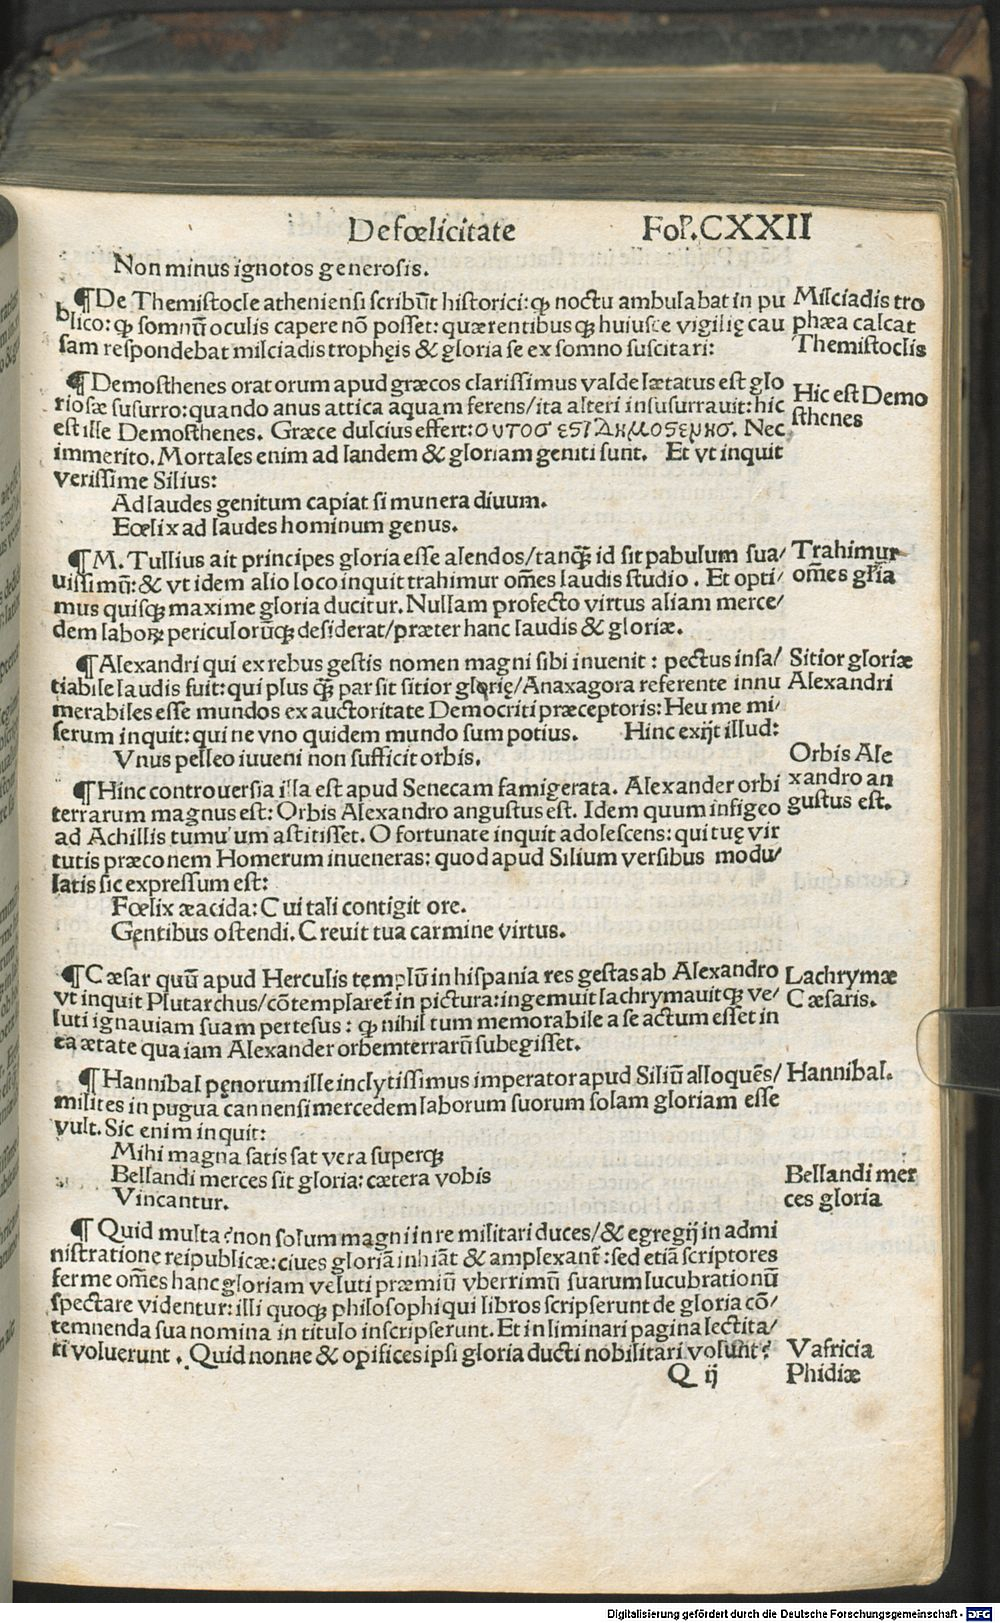 De fœlicitate Fol. CXXII
Non minus ignotos generosis.
¶De Themistocle atheniensi scribūt historici: ꝙ noctu ambulabat in pu
blico: ꝙ somnū oculis capere nō posset: quærentibusqꝫ huiusce vigilię cau
sam respondebat milciadis trophęis & gloria se ex somno suscitari:
Milciadis tro
phæa calcat
Themistoclis
¶Demosthenes oratorum apud græcos clarissimus valde lætatus est glo
riosæ susurro: quando anus attica aquam ferens/ita alteri insusurrauit: hic
est ille Demosthenes. Græce dulcius effert: ουτοσ εϛι Δημοσϛενησ. Nec
immerito. Mortales enim ad landem & gloriam geniti sunt. Et vt inquit
verissime Silius:
Hic est Demo
sthenes
Ad laudes genitum capiat si munera diuum.
Eœlix ad laudes hominum genus.
¶M. Tullius ait principes gloria esse alendos/tanqꝫ̄ id sit pabulum sua/
uissimū: & vt idem alio loco inquit trahimur om̄es laudis studio. Et opti/
mus quisqꝫ maxime gloria ducitur. Nullam profecto virtus aliam merce/
dem laborꝝ periculorūqꝫ desiderat/præter hanc laudis & gloriæ.
Trahimur
om̄es gl̄ia
¶Alexandri qui ex rebus gestis nomen magni sibi inuenit: pectus insa/
tiabile laudis fuit: qui plus qꝫ̄ par sit sitior glorię/Anaxagora referente innu
merabiles esse mundos ex auctoritate Democriti præceptoris: Heu me mi/
serum inquit: qui ne vno quidem mundo sum potius. Hinc exijt illud:
Vnus pelleo iuueni non sufficit orbis.
Sitior gloriæ
Alexandri
¶Hinc controuersia illa est apud Senecam famigerata. Alexander orbi
terrarum magnus est: Orbis Alexandro angustus est. Idem quum in sigeo
ad Achillis tumulum astitisset. O fortunate inquit adolescens: qui tuę vir
tutis præconem Homerum inueneras: quod apud Silium versibus modu/
latis sic expressum est:
Orbis Ale
xandro an
gustus est.
Fœlix æacida: Cui tali contigit ore.
Gentibus ostendi. Creuit tua carmine virtus.
¶Cæsar quū apud Herculis templū in hispania res gestas ab Alexandro
vt inquit Plutarchus/cōtemplaret̄ in pictura: ingemuit lachrymauitqꝫ ve/
luti ignauiam suam pertesus: ꝙ nihil tum memorabile a se actum esset in
ea ætate qua iam Alexander orbem terrarū subegisset.
Lachrymæ
Cæsaris.
¶Hannibal pęnorum ille inclytissimus imperator apud Siliū alloquēs/
milites in pugua cannensi mercedem laborum suorum solam gloriam esse
vult. Sic enim inquit:
Hannibal.
Mihi magna satis sat vera superqꝫ
Bellandi merces sit gloria: cætera vobis
Vincantur.
Bellandi mer
ces gloria
¶Quid multa? non solum magni in re militari duces/& egregij in admi
nistratione reipublicæ: ciues gloriā inhiāt & amplexant̄: sed etiā scriptores
ferme om̄es hanc gloriam veluti præmiū vberrimū suarum lucubrationū
spectare videntur: illi quoqꝫ philosophi qui libros scripserunt de gloria cō/
temnenda sua nomina in titulo inscripserunt. Et in liminari pagina lectita/
ti voluerunt. Quid nonne & opifices ipsi gloria ducti nobilitari volunt?
Q ij
Vafricia
Phidiæ
Digitalisierung gefördert durch die Deutsche Forschungsgemeinschaft - DFG